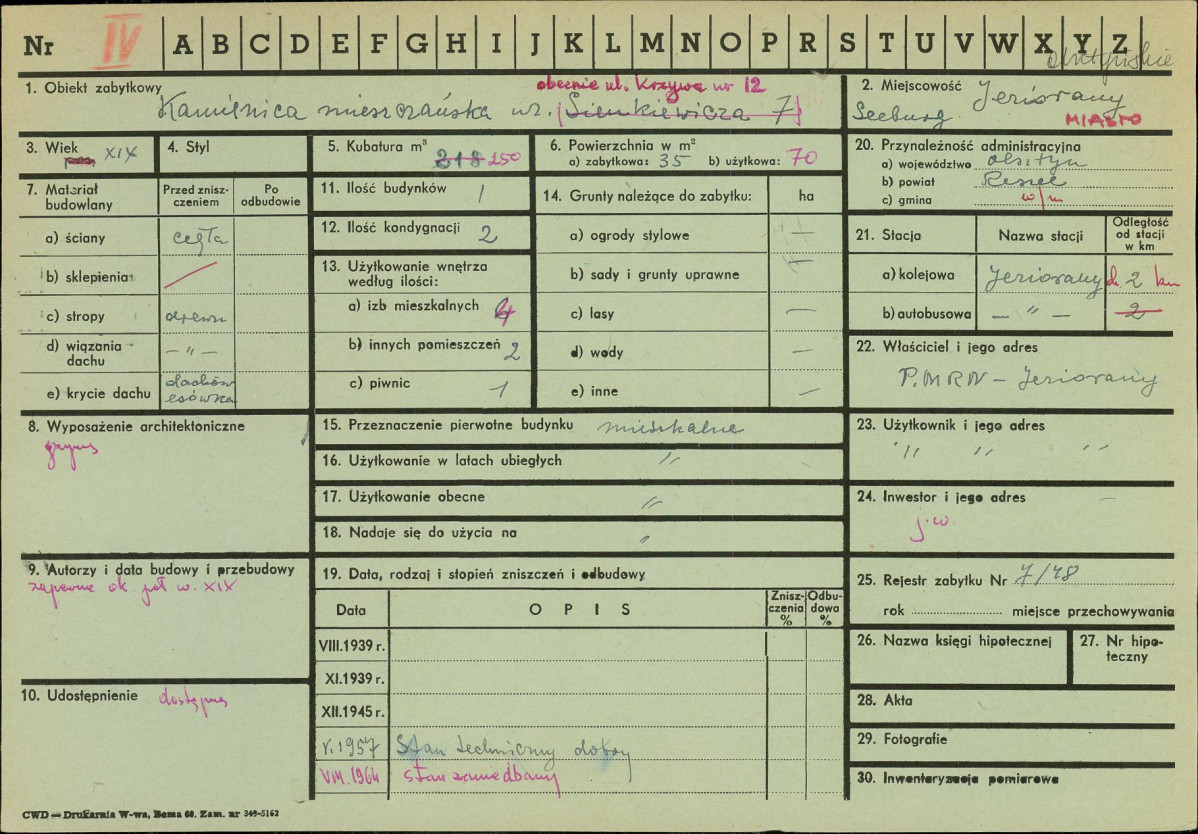 Nr IV A B C D E F G H I J K L M N O P R S T U V W X Y Z
olsztyńskie
1. Obiekt zabytkowy obecnie ul. Krzywa nr 12
Kamienica mieszczańska ul. Sienkiewicza 7
2. Miejscowość Jeziorany
Seeburg MIASTO
3. Wiek XIX
4. Styl
5. Kubatura m³
318 250
6. Powierzchnia w m²
a) zabytkowa: 35 b) użytkowa: 70
20. Przynależność administracyjna
a) województwo olsztyn
b) powiat Reszel
c) gmina w/m
7. Materiał budowlany
Przed zniszczeniem
Po odbudowie
a) ściany cegła
b) sklepienia
c) stropy drewn
d) wiązania dachu — " —
e) krycie dachu dachów esówka
11. Ilość budynków 1
12. Ilość kondygnacji 2
13. Użytkowanie wnętrza według ilości:
a) izb mieszkalnych 4
b) innych pomieszczeń 2
c) piwnic 1
14. Grunty należące do zabytku: ha
a) ogrody stylowe —
b) sady i grunty uprawne —
c) lasy —
d) wody —
e) inne —
21. Stacja
Nazwa stacji
Odległość od stacji w km
a) kolejowa Jeziorany ok. 2 km
b) autobusowa — " — 2
22. Właściciel i jego adres
P.MRN – Jeziorany
8. Wyposażenie architektoniczne
gzyms
15. Przeznaczenie pierwotne budynku mieszkalne
16. Użytkowanie w latach ubiegłych "
17. Użytkowanie obecne "
18. Nadaje się do użycia na "
23. Użytkownik i jego adres
" " "
24. Inwestor i jego adres —
j.w.
9. Autorzy i data budowy i przebudowy
zapewne ok poł w. XIX
19. Data, rodzaj i stopień zniszczeń i odbudowy
Data
OPIS
Zniszczenia %
Odbudowa %
VIII.1939 r.
XI.1939 r.
XII.1945 r.
V. 1957 Stan techniczny dobry
VIII.1964 stan zaniedbany
25. Rejestr zabytku Nr 7/48
rok miejsce przechowywania
26. Nazwa księgi hipotecznej
27. Nr hipoteczny
10. Udostępnienie dostępna
28. Akta
29. Fotografie
30. Inwentaryzacja pomiarowa
CWD — Drukarnia W-wa, Bema 60. Zam. nr 349-5162